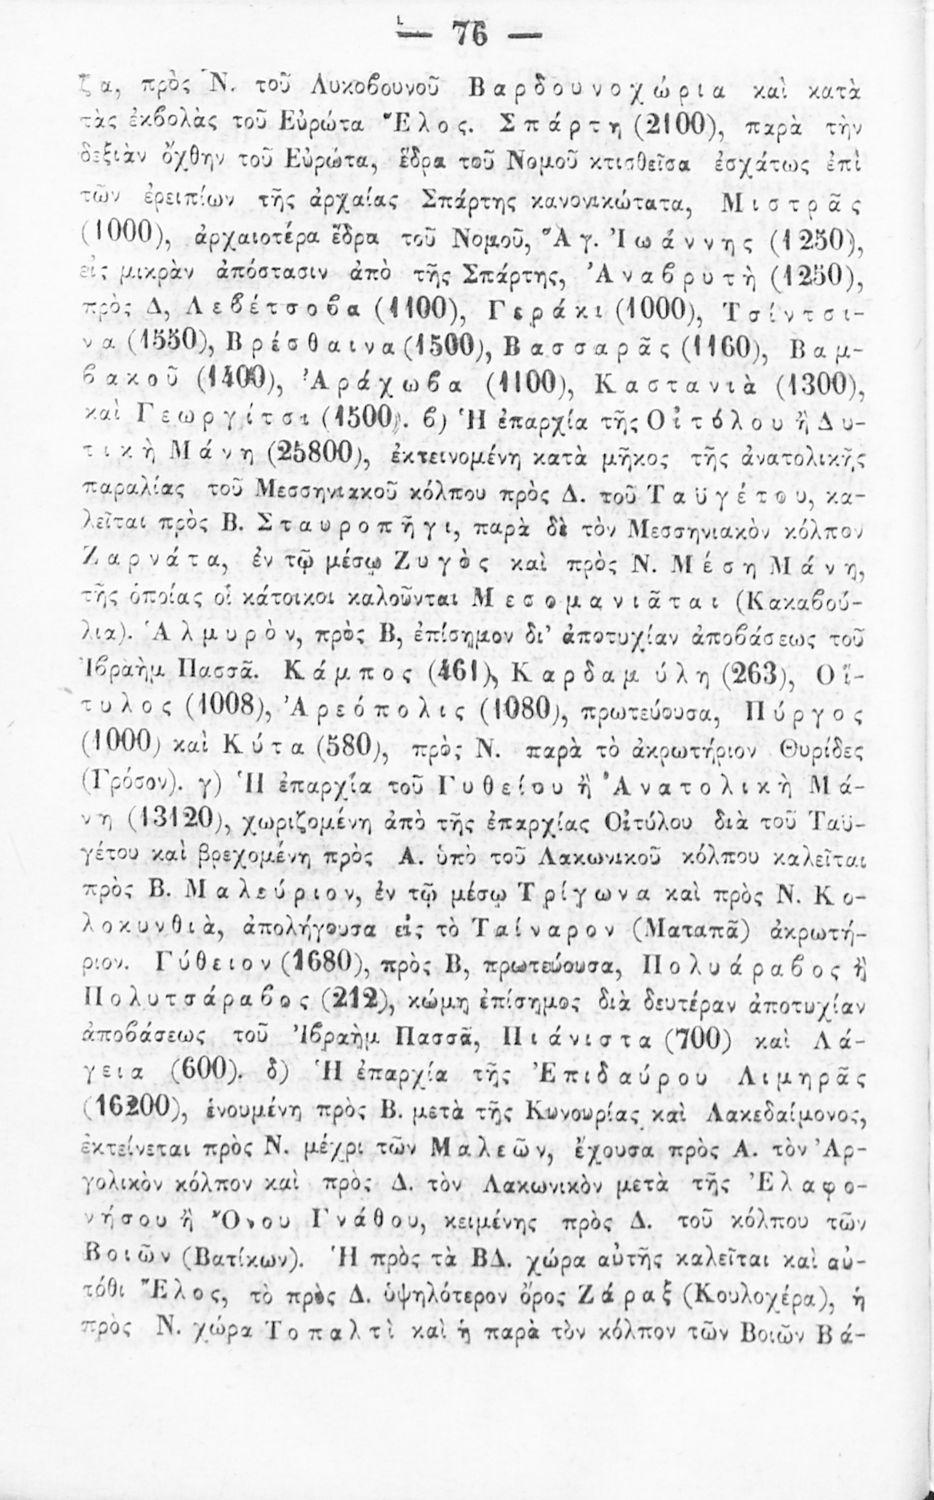 — 76 —
ζα, πρὸς Ν. τοῦ Λυκοβουνοῦ Βαρδουνοχώρια καὶ κατὰ
τὰς ἐκβολὰς τοῦ Εὐρώτα Ἕλος. Σπάρτη (2100), παρὰ τὴν
δεξιὰν ὄχθην τοῦ Εὐρώτα, ἕδρα τοῦ Νομοῦ κτισθεῖσα ἐσχάτως ἐπὶ
τῶν ἐρειπίων τῆς ἀρχαίας Σπάρτης κανονικώτατα, Μιστρᾶς
(1000), ἀρχαιοτέρα ἕδρα τοῦ Νομοῦ, Ἅγ. Ἰωάννης (1250),
εἰς μικρὰν ἀπόστασιν ἀπὸ τῆς Σπάρτης, Ἀναβρυτὴ (1250),
πρὸς Δ, Λεβέτσοβα (1100), Γεράκι (1000), Τσίντσι-
να (1550), Βρέσθαινα (1500), Βασσαρᾶς (1160), Βαμ-
βακοῦ (1400), Ἀράχωβα (1100), Καστανιὰ (1300),
καὶ Γεωργίτσι (1500). β) Ἡ ἐπαρχία τῆς Οἰτύλου ἢ Δυ-
τικὴ Μάνη (25800), ἐκτεινομένη κατὰ μῆκος τῆς ἀνατολικῆς
παραλίας τοῦ Μεσσηνιακοῦ κόλπου πρὸς Δ. τοῦ Ταϋγέτου, κα-
λεῖται πρὸς Β. Σταυροπῆγι, παρὰ δὲ τὸν Μεσσηνιακὸν κόλπον
Ζαρνάτα, ἐν τῷ μέσῳ Ζυγὸς καὶ πρὸς Ν. Μέση Μάνη,
τῆς ὁποίας οἱ κάτοικοι καλοῦνται Μεσομανιᾶται (Κακαβού-
λια). Ἁλμυρὸν, πρὸς Β, ἐπίσημον δι’ ἀποτυχίαν ἀποβάσεως τοῦ
Ἰβραὴμ Πασσᾶ. Κάμπος (461), Καρδαμύλη (263), Οἴ-
τυλος (1008), Ἀρεόπολις (1080), πρωτεύουσα, Πύργος
(1000) καὶ Κύτα (580), πρὸς Ν. παρὰ τὸ ἀκρωτήριον Θυρίδες
(Γρόσον). γ) Ἡ ἐπαρχία τοῦ Γυθείου ἢ Ἀνατολικὴ Μά-
νη (13120), χωριζομένη ἀπὸ τῆς ἐπαρχίας Οἰτύλου διὰ τοῦ Ταϋ-
γέτου καὶ βρεχομένη πρὸς Α. ὑπὸ τοῦ Λακωνικοῦ κόλπου καλεῖται
πρὸς Β. Μαλεύριον, ἐν τῷ μέσῳ Τρίγωνα καὶ πρὸς Ν. Κο-
λοκυνθιὰ, ἀπολήγουσα εἰς τὸ Ταίναρον (Ματαπᾶ) ἀκρωτή-
ριον. Γύθειον (1680), πρὸς Β, πρωτεύουσα, Πολυάραβος ἢ
Πολυτσάραβος (212), κώμη ἐπίσημος διὰ δευτέραν ἀποτυχίαν
ἀποβάσεως τοῦ Ἰβραὴμ Πασσᾶ, Πιάνιστα (700) καὶ Λά-
γεια (600). δ) Ἡ ἐπαρχία τῆς Ἐπιδαύρου Λιμηρᾶς
(16200), ἑνουμένη πρὸς Β. μετὰ τῆς Κυνουρίας καὶ Λακεδαίμονος,
ἐκτείνεται πρὸς Ν. μέχρι τῶν Μαλεῶν, ἔχουσα πρὸς Α. τὸν Ἀρ-
γολικὸν κόλπον καὶ πρὸς Δ. τὸν Λακωνικὸν μετὰ τῆς Ἐλαφο-
νήσου ἢ Ὄνου Γνάθου, κειμένης πρὸς Δ. τοῦ κόλπου τῶν
Βοιῶν (Βατίκων). Ἡ πρὸς τὰ ΒΔ. χώρα αὐτῆς καλεῖται καὶ αὐ-
τόθι Ἕλος, τὸ πρὸς Δ. ὑψηλότερον ὄρος Ζάραξ (Κουλοχέρα), ἡ
πρὸς Ν. χώρα Τοπαλτὶ καὶ ἡ παρὰ τὸν κόλπον τῶν Βοιῶν Βά-